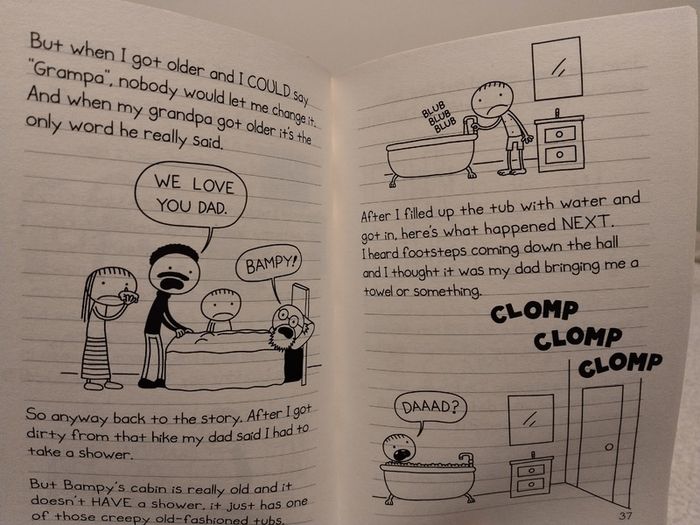 But when I got older and I COULD say
"Grampa", nobody would let me change it.
And when my grandpa got older it's the
only word he really said.
WE LOVE
YOU DAD.
BAMPY!
So anyway back to the story. After I got
dirty from that hike my dad said I had to
take a shower.
But Bampy's cabin is really old and it
doesn't HAVE a shower, it just has one
of those creepy old-fashioned tubs.
BLUB
BLUB
BLUB
After I filled up the tub with water and
got in, here's what happened NEXT.
I heard footsteps coming down the hall
and I thought it was my dad bringing me a
towel or something.
CLOMP
CLOMP
CLOMP
DAAAD?
37